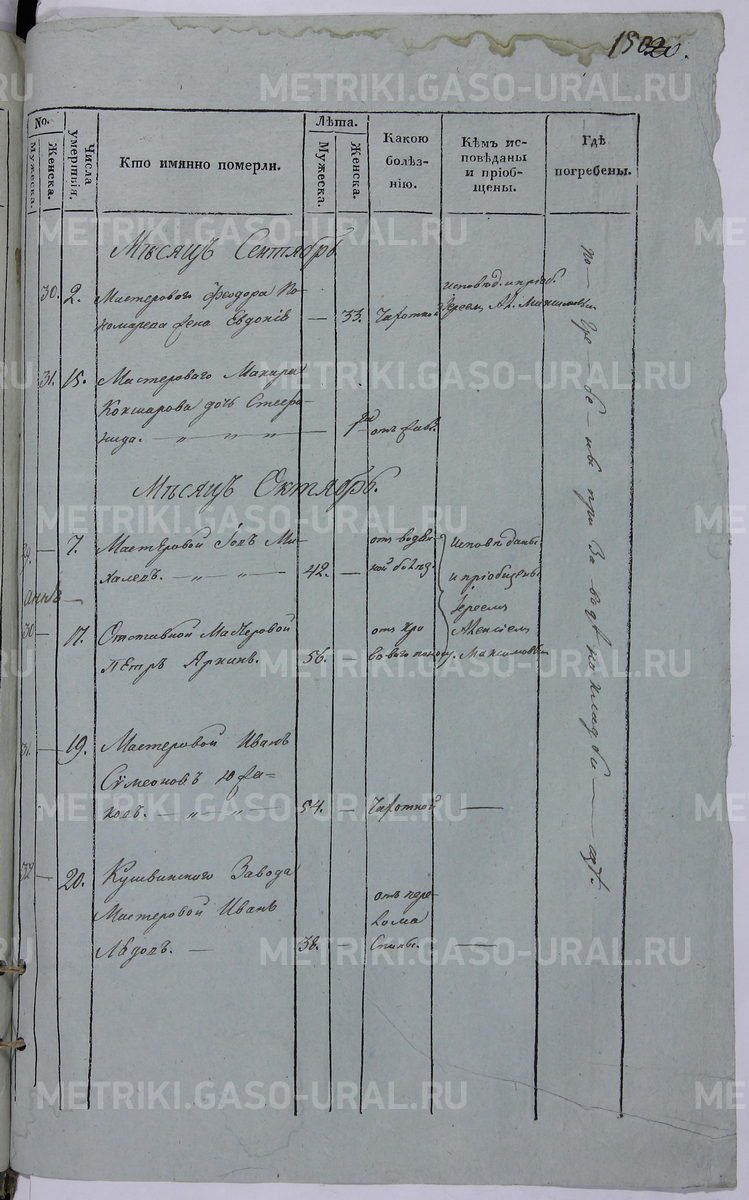 150 20.
METRIKI.GASO-URAL.RU
No.
Мужеска.
Женска.
Числа умершія.
Кто имянно померли.
Лѣта.
Мужеска.
Женска.
Какою болѣз-нію.
Кѣмъ ис-повѣданы и пріоб-щены.
Гдѣ погребены.
Мѣсяцъ Сентябрь
30. 2. Мастероваго Ѳеодора По-
номарева жена Евдокія — 33. Чахоткой
Іереем Ал. Максимовым
31. 15. Мастероваго Макара
Кокшарова дочь Степа-
нида. — „ — „ — „ —
Мѣсяцъ Октябрь.
7. Мастеровой Іовъ Ми-
халевъ. — „ — „ — 42. —
от водян-
ной болѣз.
Исповѣданы
и пріобщены
Іереемъ
Алексіемъ
Максимовым
30 — 17. Отставной Мастеровой
Петръ Яркинъ. 56. —
отъ кро
ваваго поносу.
31. — 19. Мастеровой Иванъ
Сѵмеоновъ Южа-
ковъ. — „ — „ — 54. — Чахоткой —
32 — 20. Кушвинскаго Завода
Мастеровой Иванъ
38. —
отъ пере-
лома
Спины. —
по — гре — бе — ны при За во дѣ на кладби — щѣ.